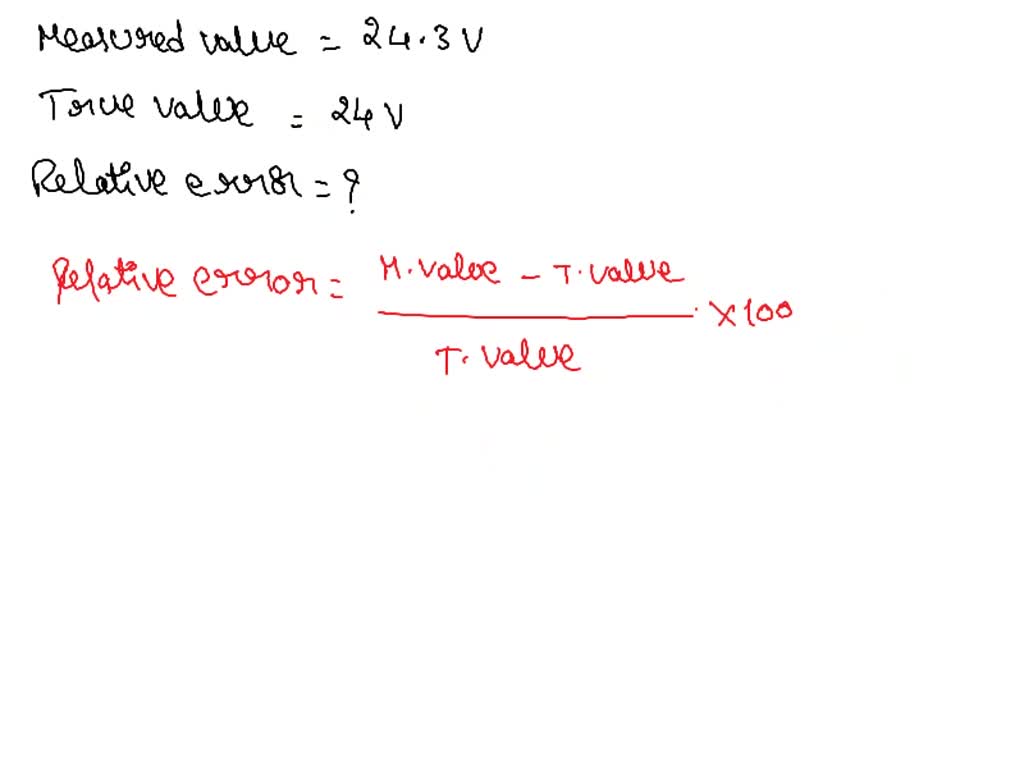 Measured value = 24.3 V
True value = 24 V
Relative error = ?
Relative error = M. value - T. value / T. value × 100